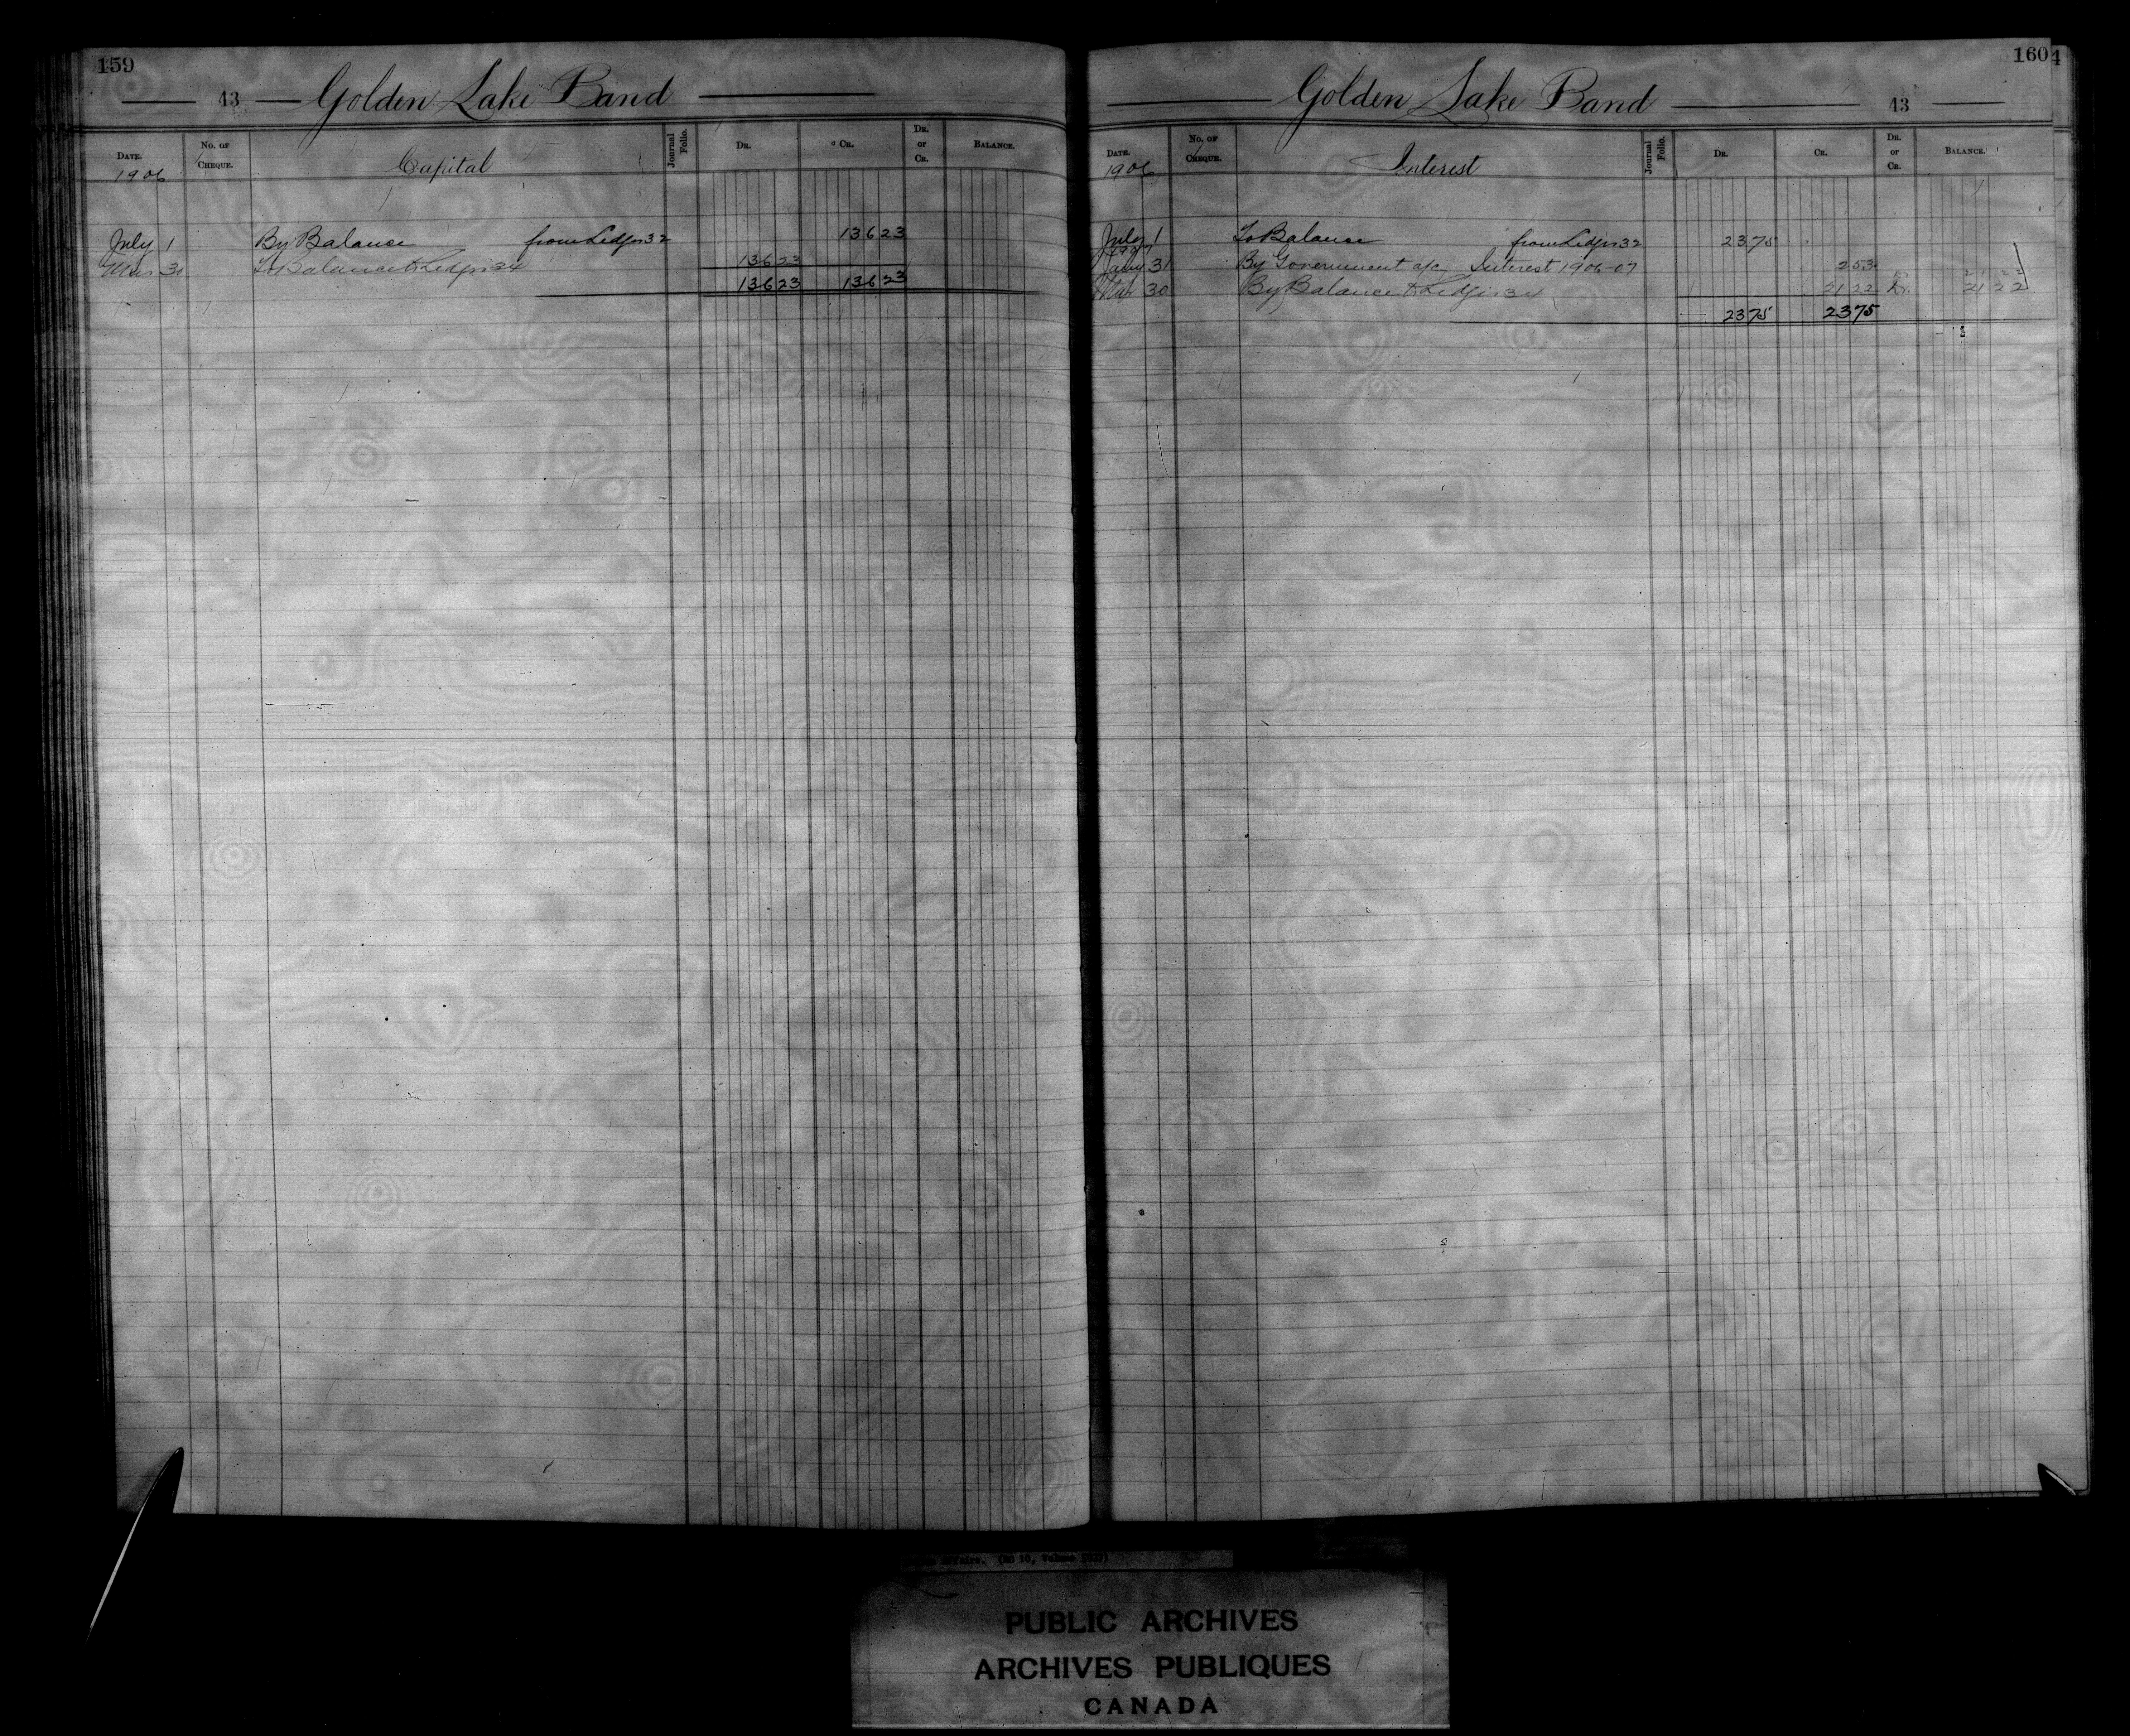 159
43 Golden Lake Band
DATE. No. OF CHEQUE. Capital Journal Folio. DR. CR. DR. or CR. BALANCE.
1906
July 1 By Balance from Ledger 32 136 23
Mar 30 To Balance to Ledger 34 136 23
136 23 136 23
160
43 Golden Lake Band
DATE. No. OF CHEQUE. Interest Journal Folio. DR. CR. DR. or CR. BALANCE.
1906
July 1 To Balance from Ledger 32 23 75
1907
Jany 31 By Government a/c Interest 1906-07 2 53 Dr. 21 22
Mar 30 By Balance to Ledger 34 21 22 Dr. 21 22
23 75 23 75
Affairs. (RG 10, Volume
PUBLIC ARCHIVES
ARCHIVES PUBLIQUES
CANADA